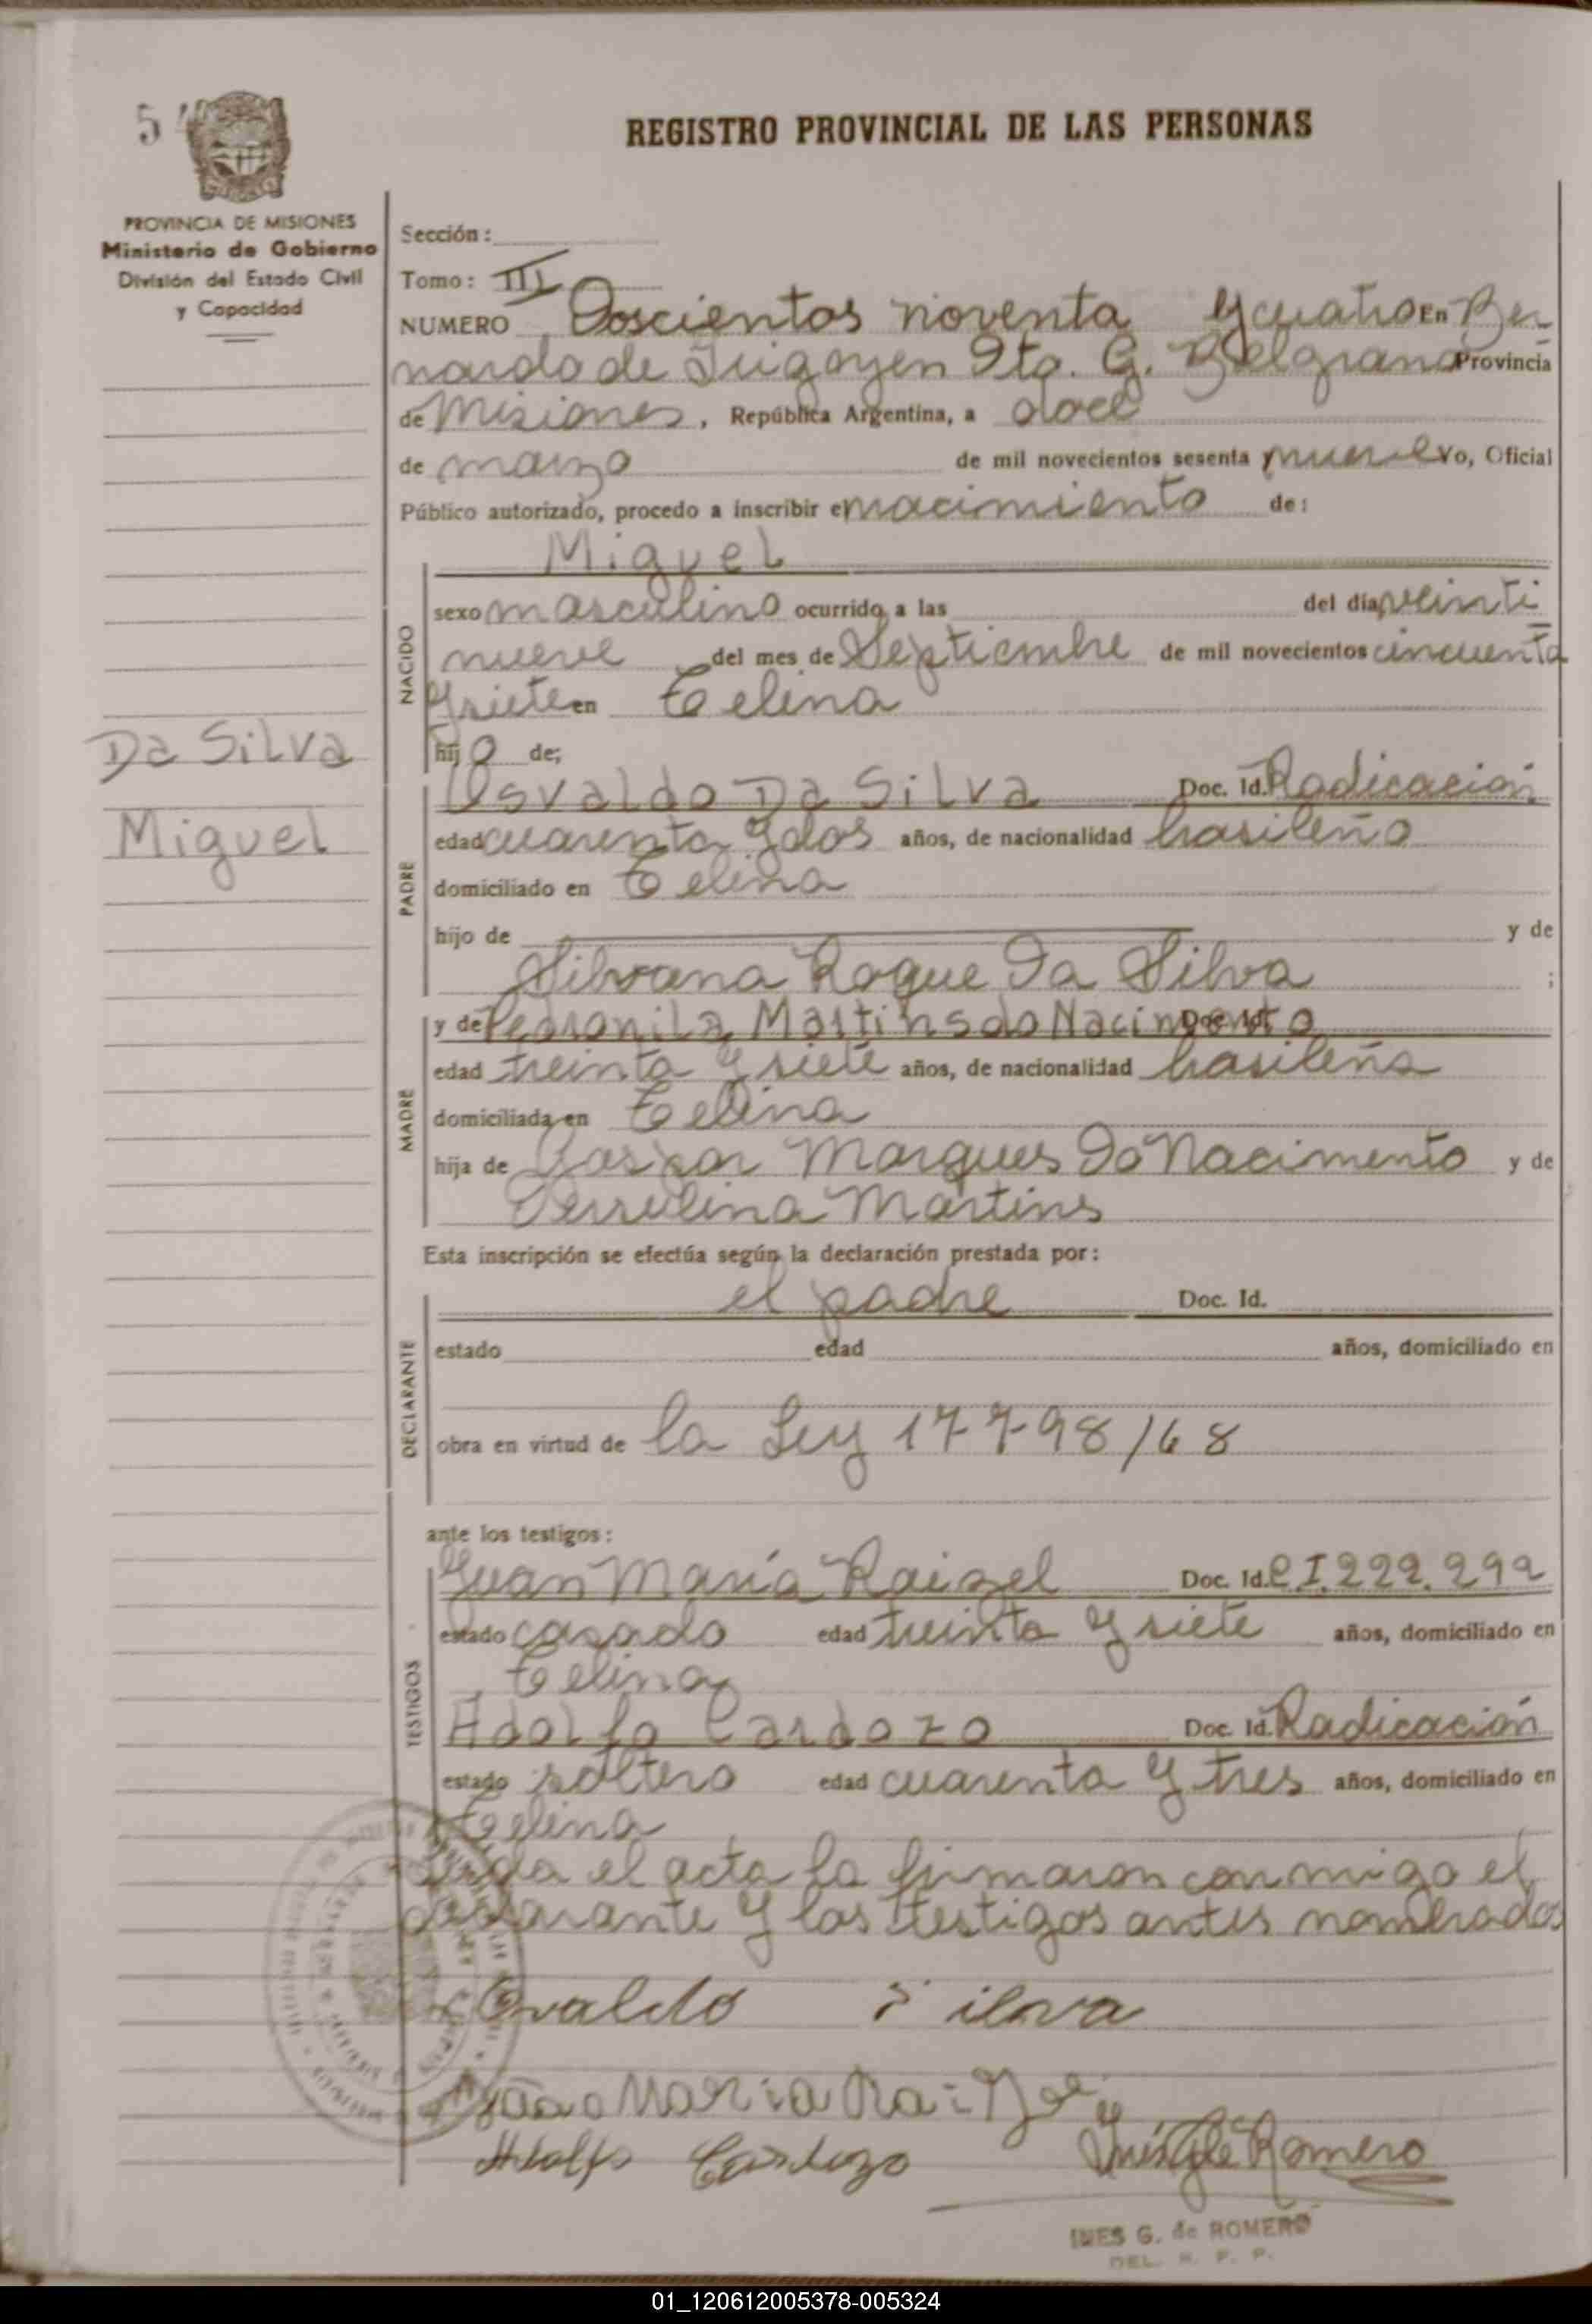 5
REGISTRO PROVINCIAL DE LAS PERSONAS
PROVINCIA DE MISIONES
Ministerio de Gobierno
División del Estado Civil
y Capacidad
Sección:
Tomo: III
NUMERO Doscientos noventa y cuatro En Ber
nardo de Irigoyen Dto. G. Belgrano Provincia
de Misiones, República Argentina, a doce
de marzo de mil novecientos sesenta y nueve yo, Oficial
Público autorizado, procedo a inscribir el nacimiento de:
Miguel
NACIDO
sexo masculino ocurrido a las del día veinti
nueve del mes de Septiembre de mil novecientos cincuenta
y siete en
hijo de;
Da Silva
Miguel
PADRE
Osvaldo Da Silva Doc. Id. Radicación
edad cuarenta y dos años, de nacionalidad brasileño
domiciliado en
hijo de y de
Silvana Roque Da Silva ;
MADRE
y de Pedronila Martins do Nacimento Doc. Id.
edad treinta y siete años, de nacionalidad brasileña
domiciliada en
hija de Gaspar Marques Do Nacimento y de
Martins
Esta inscripción se efectúa según la declaración prestada por:
DECLARANTE
el padre Doc. Id.
estado edad años, domiciliado en
obra en virtud de la Ley 17798/68
ante los testigos:
TESTIGOS
Juan María Raizel Doc. Id. C I. 222.292
estado casado edad treinta y siete años, domiciliado en
Adolfo Cardozo Doc. Id. Radicación
estado soltero edad cuarenta y tres años, domiciliado en
Leida el acta la firmaron conmigo el
declarante y los testigos antes nombrados
Osvaldo Silva
João Maria
Adolfo Cardozo Inés G de Romero
INES G. de ROMERO
DEL. R. P. P.
01_120612005378-005324